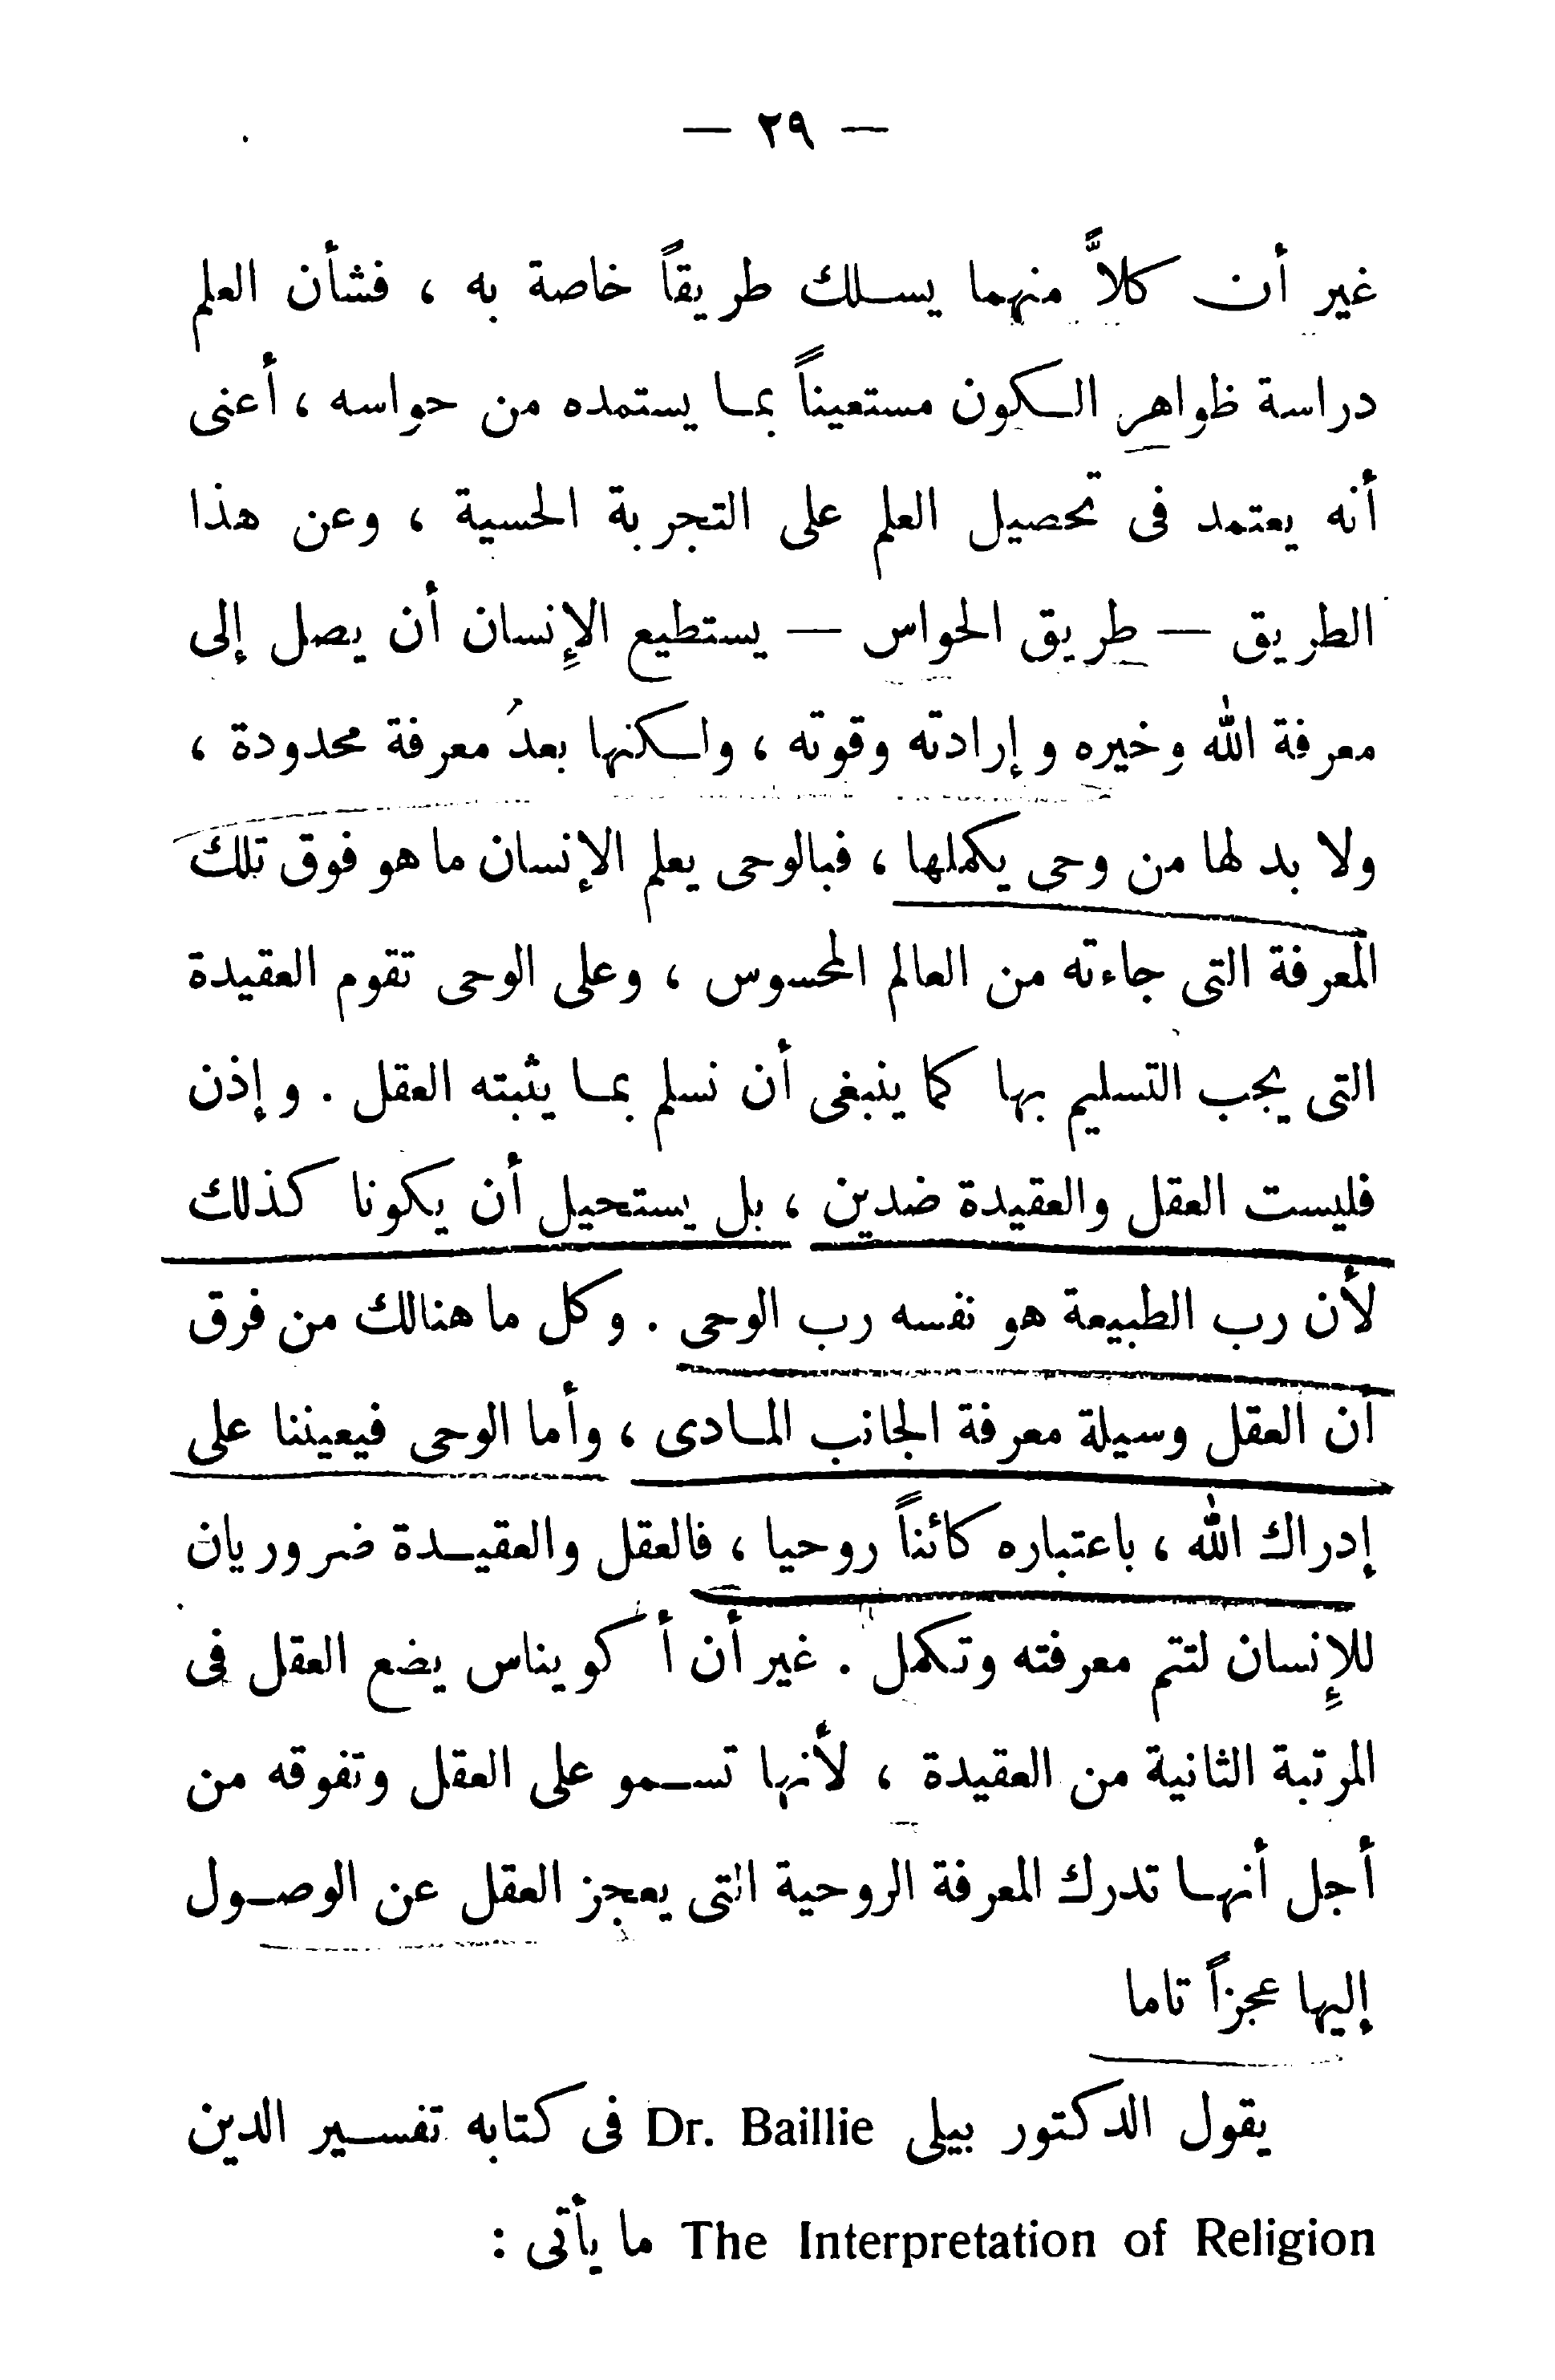 — ٢٩ —
غير أن كلاًّ منهما يسلك طريقاً خاصة به ، فشأن العلم
دراسة ظواهر الكون مستعيناً بما يستمده من حواسه ، أعنى
أنه يعتمد فى تحصيل العلم على التجربة الحسية ، وعن هذا
الطريق — طريق الحواس — يستطيع الإِنسان أن يصل إلى
معرفة الله وخيره وإرادته وقوته ، ولكنها بعدُ معرفة محدودة ،
ولا بد لها من وحى يكملها ، فبالوحى يعلم الإنسان ما هو فوق تلك
المعرفة التى جاءته من العالم المحسوس ، وعلى الوحى تقوم العقيدة
التى يجب التسليم بها كما ينبغى أن نسلم بما يثبته العقل . وإذن
فليست العقل والعقيدة ضدين ، بل يستحيل أن يكونا كذلك
لأن رب الطبيعة هو نفسه رب الوحى . وكل ما هنالك من فرق
أن العقل وسيلة معرفة الجانب المادى ، وأما الوحى فيعيننا على
إدراك الله ، باعتباره كائناً روحيا ، فالعقل والعقيدة ضروريان
للإِنسان لتتم معرفته وتكمل . غير أن أكويناس يضع العقل فى
المرتبة الثانية من العقيدة ، لأنها تسمو على العقل وتفوقه من
أجل أنها تدرك المعرفة الروحية التى يعجز العقل عن الوصول
إليها عجزاً تاما
يقول الدكتور بيلى Dr. Baillie فى كتابه تفسير الدين
The Interpretation of Religion ما يأتى :